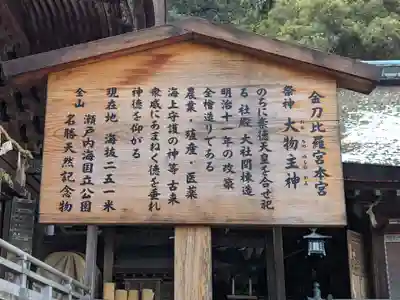 金刀比羅宮本宮
祭神 大物主神
おお もの ぬし の かみ
のちに崇徳天皇を合せ祀
る 社殿 大社関棟造
明治十一年の改築
全檜造りである
農業・殖産・医薬
海上守護の神等 古来
衆庶にあまねく徳を垂れ
神徳を仰がる
現在地 海抜二五一米
瀬戸内海国立公園
全山 名勝天然記念物